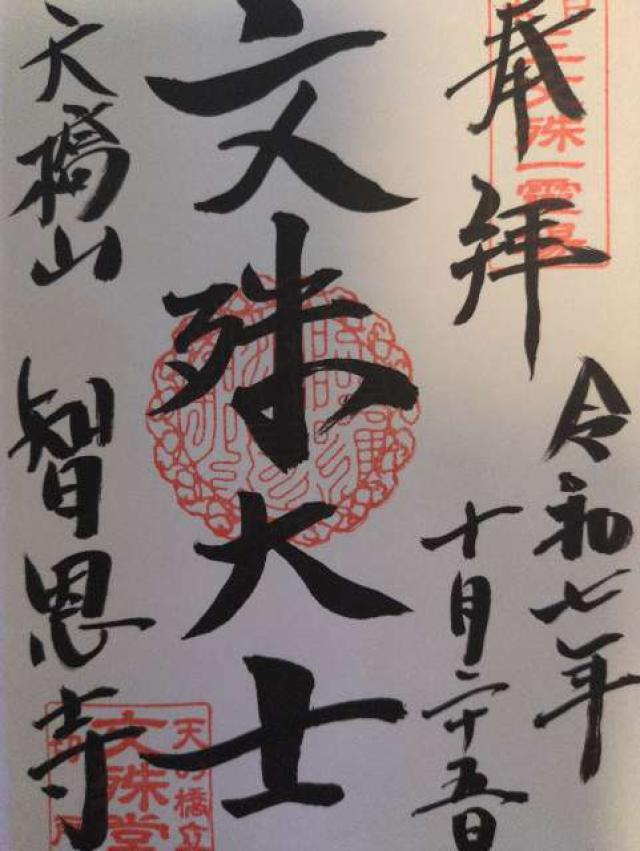 奉拝
令和七年
十月二十五日
文殊大士
天橋山
智恩寺
日三文殊一霊場
天の橋立
文殊堂